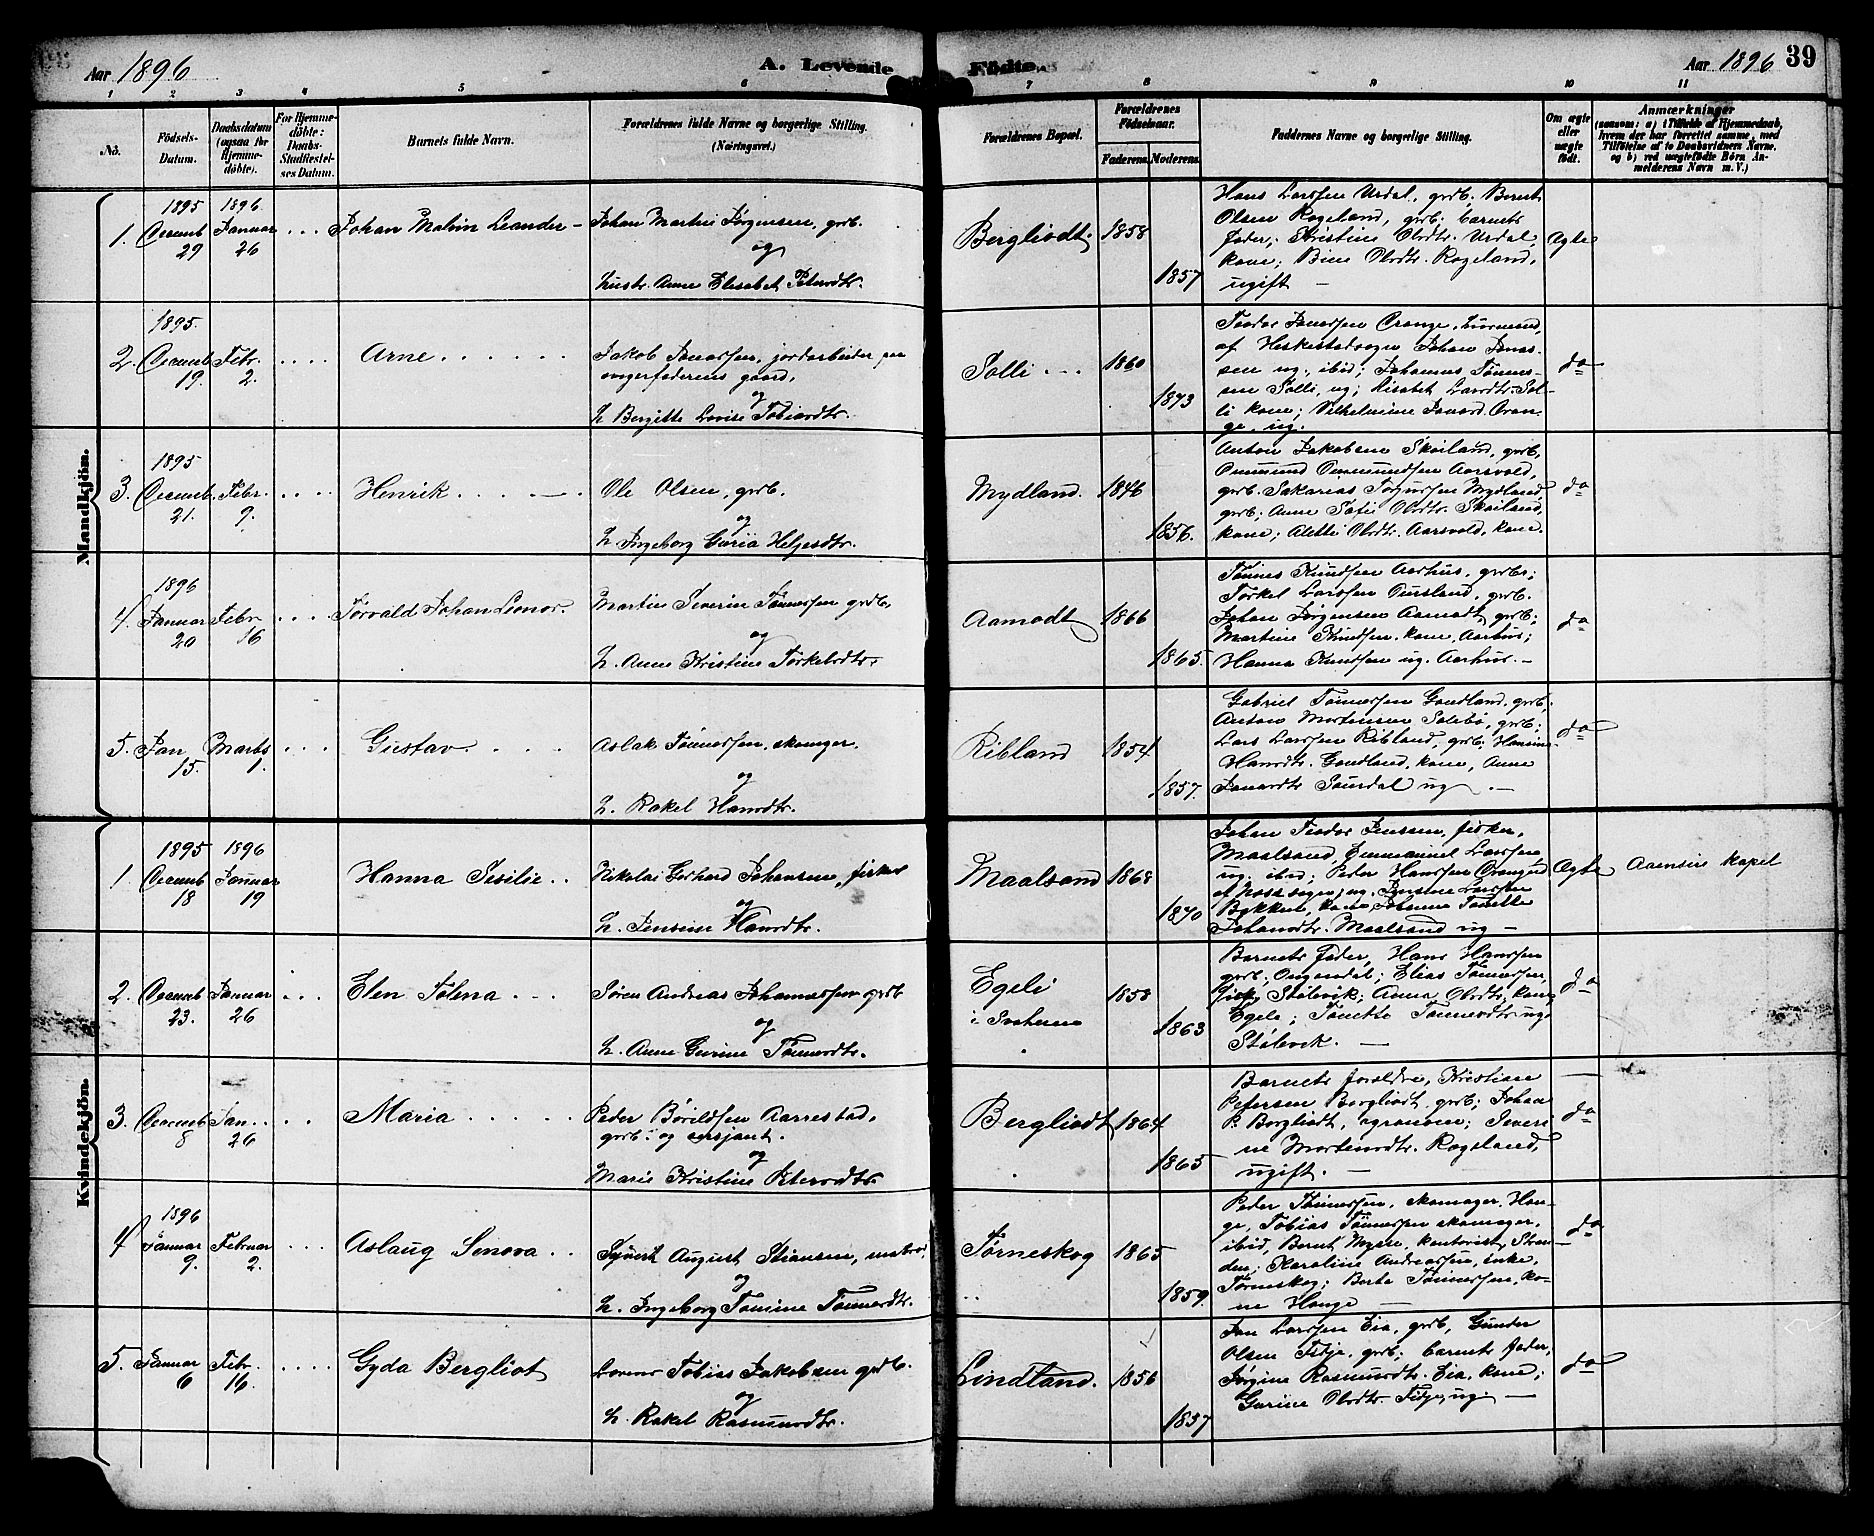 Aar 1896
A. Levende
Fødte.
Aar 1896
39
1 2 3 4 5 6 7 8 9 10 11
No.
Fødsels-
Datum.
Daabsdatum
(ogsaa for
Hjemme-
døbte).
For Hjemme-
døbte:
Daabs-
Stadfæstel-
ses Datum.
Barnets fulde Navn.
Forældrenes fulde Navne og borgerlige Stilling.
(Næringsvei.)
Forældrenes Bopæl.
Forældrenes
Fødselsaar.
Faderens.
Moderens.
Faddernes Navne og borgerlige Stilling.
Om ægte
eller
uægte
født.
Anmærkninger
(saasom: a) i Tilfælde af Hjemmedaab,
hvem der har forrettet samme, med
Tilføielse af to Daabsvidners Navne,
og b) ved uægtefødte Børn An-
melderens Navn m. V.)
Mandkjön.
1. 1895 Decemb 29
1896 Januar 26
Johan Malvin Leander
Johan Martin Jørgensen, grdb.
og
hustr. Anne Elisabet Petersdtr.
Bergliodt.
1858
1857
Hans Larssen Urdal, grdb. Bernt
Olsen Rageland, grdb; barnets
fader; Kristine Olsdtr. Urdal,
kone; Bine Olsdtr. Rageland,
ugift
Ægte
2. 1895. Decemb 19.
Febr. 2.
Arne
Jakob Jonassen, jordarbeider paa
svigerfaderens gaard.
og
h. Bergitte Lovise Tobiasdtr.
Solli
1860
1873
Teodor Jonassen Orange,
af Heskestadsogn Johan Jonas-
sen ug. ibid; Johannes Tønnes-
sen Solli, ug; Lisabet Larsdtr. Sol-
li kone; Vilhelmine Jonasd. Oran-
ge, ug.
do
3. 1895 Decemb. 21.
Febr. 9.
Henrik
Ole Olsen, grdb.
og
h. Ingeborg Guria Heljesdtr.
Mydland.
1846
1856.
Anton Jakobsen Skailand, grdb,
Ommund Ommundsen Aarsvold,
grdb. Sakarias Mydland,
grdb; Anne Sofie Olsdtr. Skailand,
kone; Alette Olsdtr. Aarsvold, kone.
do
4. 1896 Januar 20
Febr. 16
Torvald Johan Leonor.
Martin Severin Tønnessen grdb.
og
h. Anne Kristine Torkelsdtr.
Aamodt
1866
1865.
Tønnes Knudsen Aarhus, grdbr;
Torkel Larssen Omsland, grdb.
Johan Jørgensen Aamodt grdb;
Martine Knudsen, kone, Aarhus;
Hanna Knudsen ug. Aarhus.
do
5. Jan 15.
Marts 1.
Gustav
Aslak Tønnessen, skomger.
og
h. Rakel Hansdtr.
Ribland
1854
1857.
Gabriel Tønnessen Goudland, grdb,
Anton Mortensen Solebø, grdb;
Lars Larssen Ribland, grdb; Hansine
Hansdtr. Goudland, kone, Anne
Jonasdtr Saurdal ug
do
Kvindekjön.
1 1895 Decemb 18
1896 Januar 19
Hanna Sesilie
Nikolai Gerhard Johansen, fisker
og
h. Jensine Hansdtr.
Maalsand
1868
1870
Johan Teodor Jenssen, fisker,
Maalsand, Emmanuel Larssen
ug. ibid; Peter Hanssen
sogn; ug. Jensine Larssen
Bakken, kone Johanne Tonette
Johansdtr. Maalsand ug
Ægte
Aaensire kapel
2. Decemb 23.
Januar 26
Elen Tolena
Søren Andreas Johannessen grdb
og
h. Anne Gurine Tønnesdtr.
Egeli
i Svaheia
1858
1863
Barnets fader, Hans Hanssen
grdb; Ongendal; Elias Tønnessen,
fisk, Stølevik; Anna Olsdtr, kone,
Egeli; Tonette Tønnesdtr ug.
Stølevik.
do
3. Decemb 8
Jan. 26
Maria
Peder Børildsen Aarrestad,
grdb. og sersjant.
og
Marie Kristine Petersdtr.
Bergliodt
1864
1865
Barnets forældre, Kristian
Petersen Bergliodt, grdb; Johan
P. Bergliodt, agronom; Severi-
ne Mortensdtr. Rageland,
ugift.
do
4 1896 Januar 9.
Februar 2.
Aslaug Senova
Syvert August Stiansen, matros
og
h. Ingeborg Tomine Tønnesdtr.
Tørneskog
1865
1859.
Peder Tønnessen, skomager, Han-
ge, Tobias Tønnessen skomager,
ibid, Bernt Mysse, kontorist, Stran-
den; Karoline Andreassen, enke,
Tørneskog; Berte Tønnessen, ko-
ne Hauge
do
5. Januar 6
Febr. 16.
Gyda Bergliot
Tobias Jakobsen grdb.
og
h. Rakel Rasmusdtr.
Lindland.
1856
1857
Jan Larssen Eia, grdb, Gunder
Olsen Fidje, grdb; barnets fader;
Jørgine Rasmusdtr. Eia, kone;
Gurine Olsdtr. Fidje, ug.
do